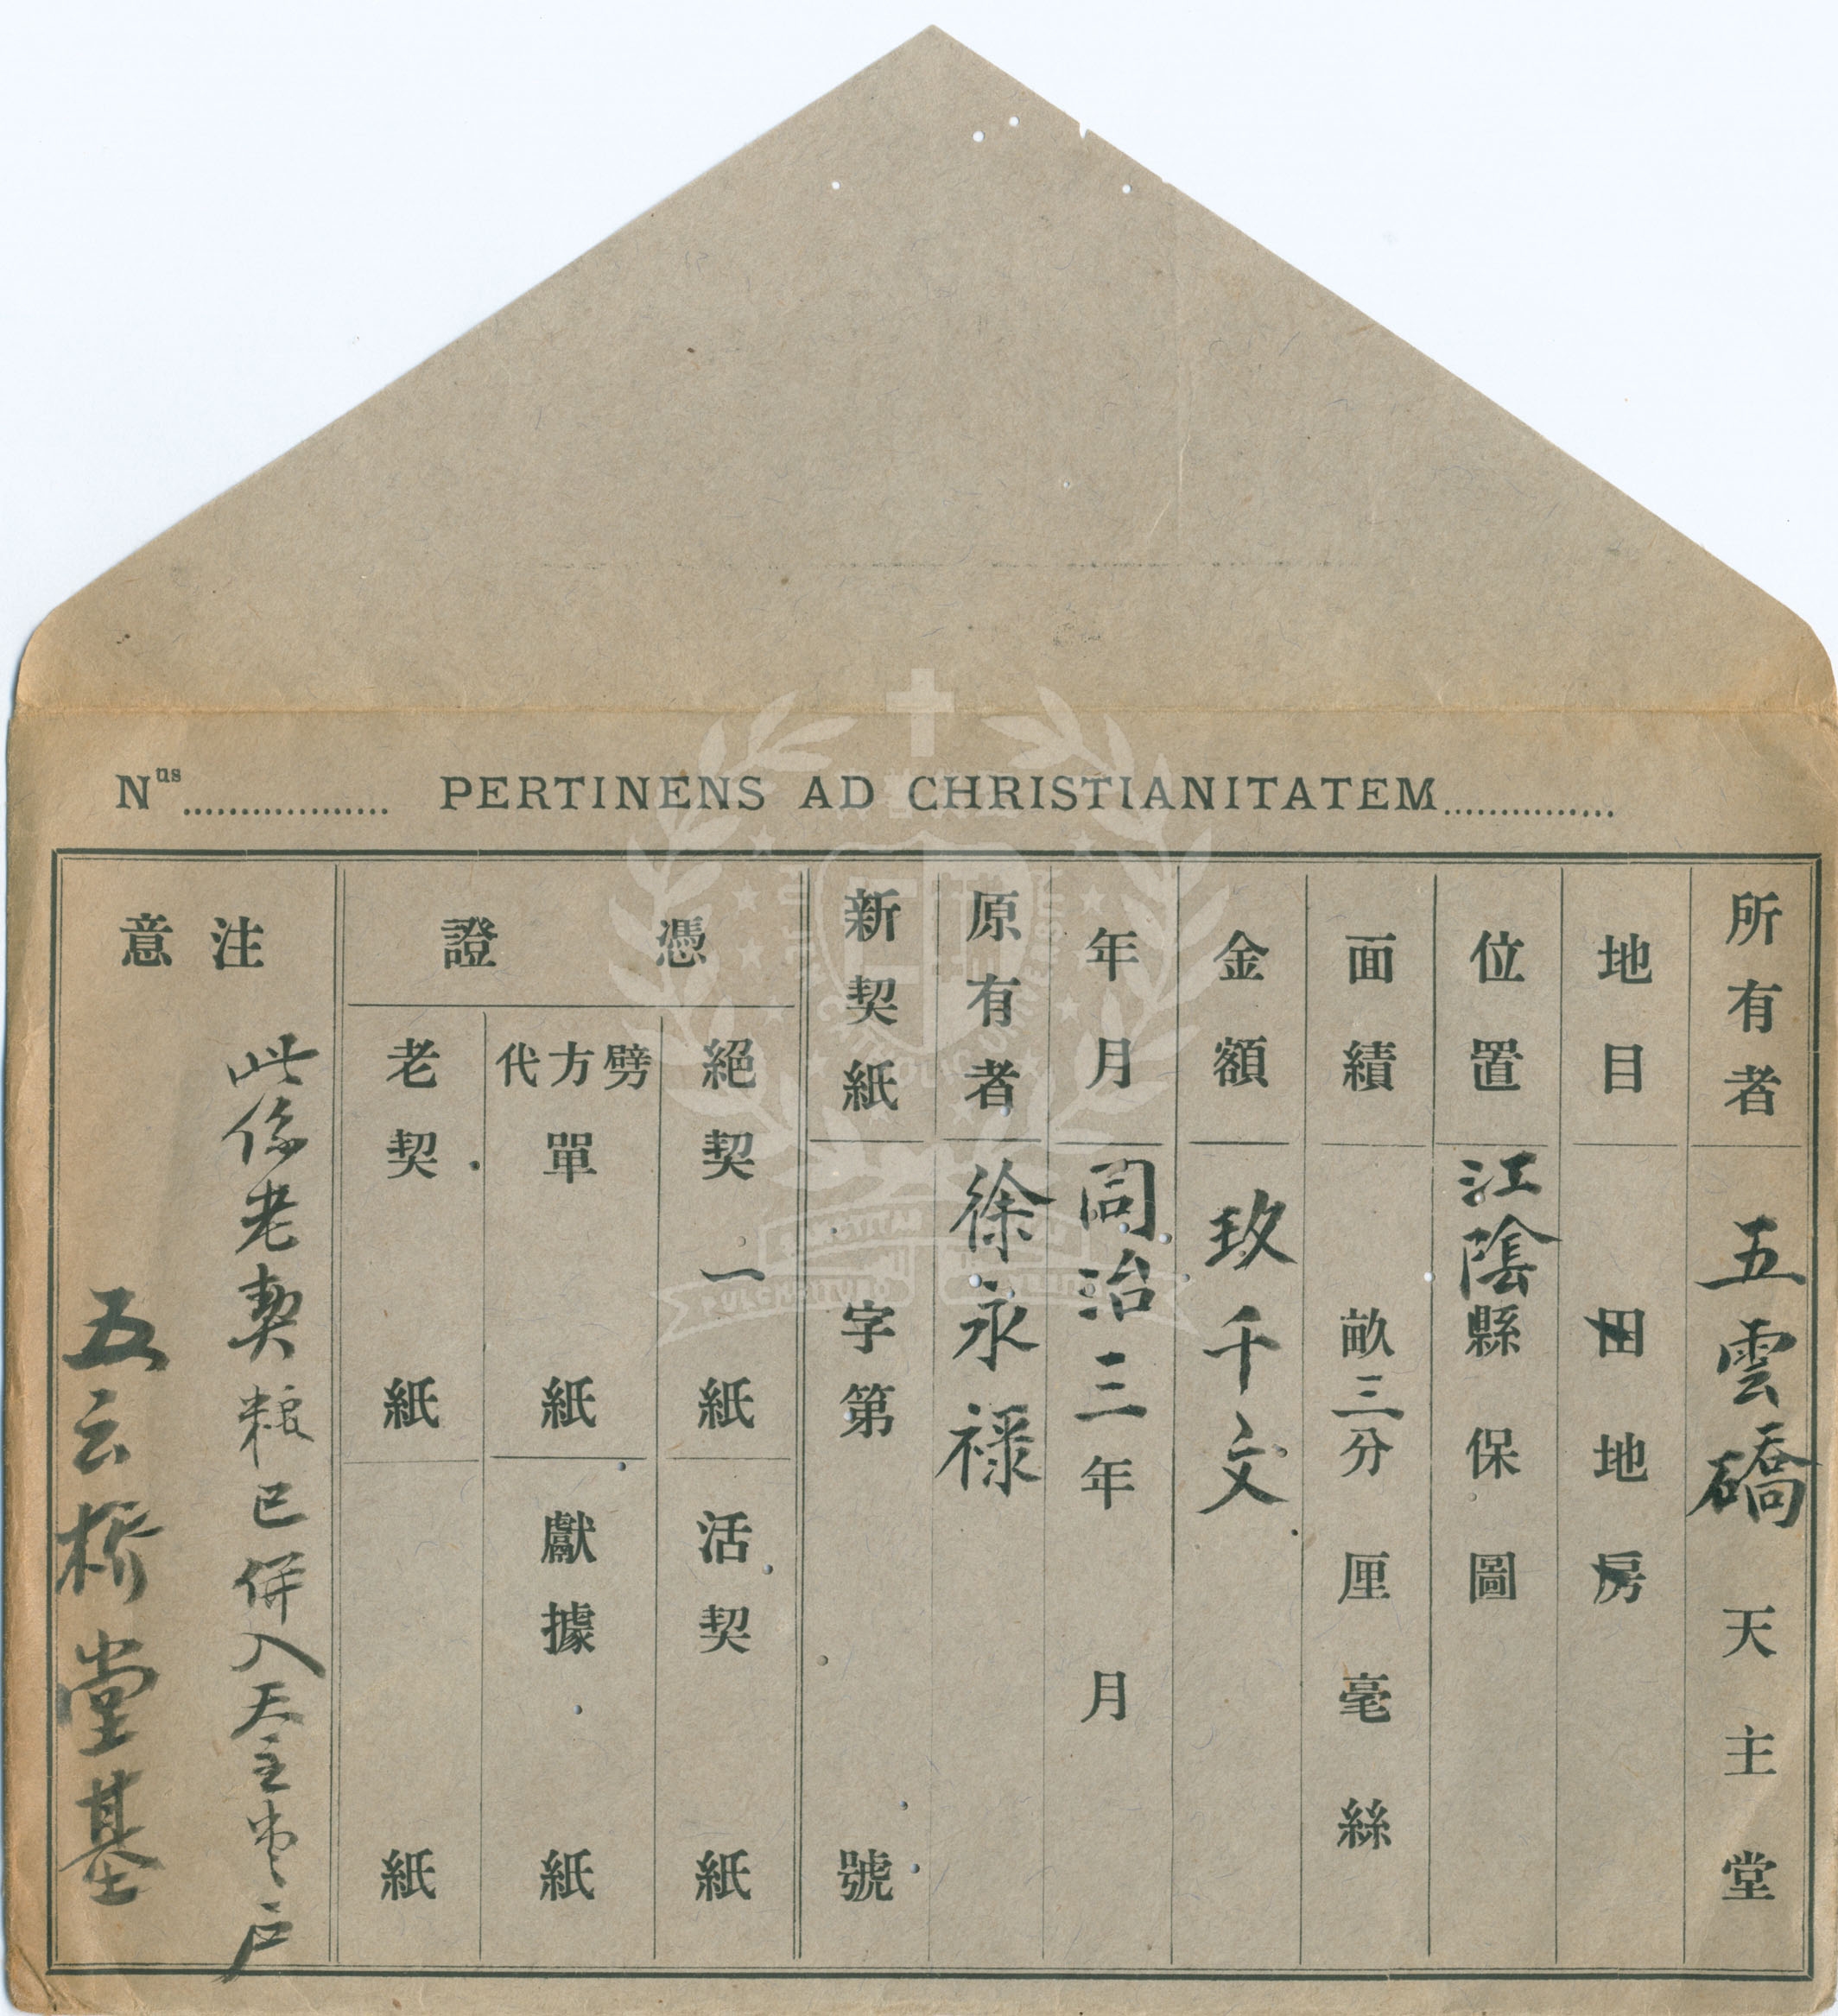 Nus.................. PERTINENS AD CHRISTIANITATEM...............
所有者 五雲礄天主堂
地目 田地房
位置 江陰縣保圖
面績 畝三分厘毫絲
金額 玖千文
年月 同治三年月
原有者 徐永禄
新契紙 字第號
憑證
絕契一紙
活契紙
劈方代單紙
獻據紙
老契紙
紙
注意
此係老契粮已併入天主堂户
五云桥堂基